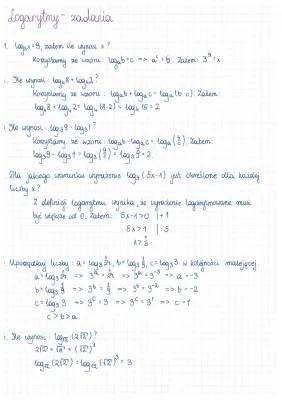 Logarytmy - zadania
1. log₃x = 9, zatem ile wynosi x?
Korzystamy ze wzoru: logₐb = c => aᶜ = b. Zatem: 3⁹ = x
Ile wynosi: log₄8 + log₄2?
Korzystamy ze wzoru: logₐb + logₐc = logₐ(b·c). Zatem:
log₄8 + log₄2 = log₄(8·2) = log₄16 = 2
Ile wynosi: log₃9 - log₃1?
Korzystamy ze wzoru: logₐb - logₐc = logₐ(b/c). Zatem:
log₃9 - log₃1 = log₃(9/1) = log₃9 = 2.
Dla jakiego warunku wyrażenie log₃(5x-1) jest określone dla każdej
liczby x?
Z definicji logarytmu wynika, że wyrażenie logarytmowane musi
być większe od 0. Zatem: 5x-1>0 |+1
5x>1 |:5
x>1/5
Uporządkuj liczby: a = log₃1/27, b = log₃1/9, c = log₃3 w kolejności malejącej.
a = log₃1/27 => 3ᵃ = 1/27 => 3ᵃ = 3⁻³ => a = -3
b = log₃1/9 => 3ᵇ = 1/9 => 3ᵇ = 3⁻² => b = -2
c = log₃3 => 3ᶜ = 3 => 3ᶜ = 3¹ => c = 1
c > b > a
Ile wynosi: log√2 (2√2)?
2√2 = √8 = (√2)³
log√2 (2√2) = log√2 (√2)³ = 3